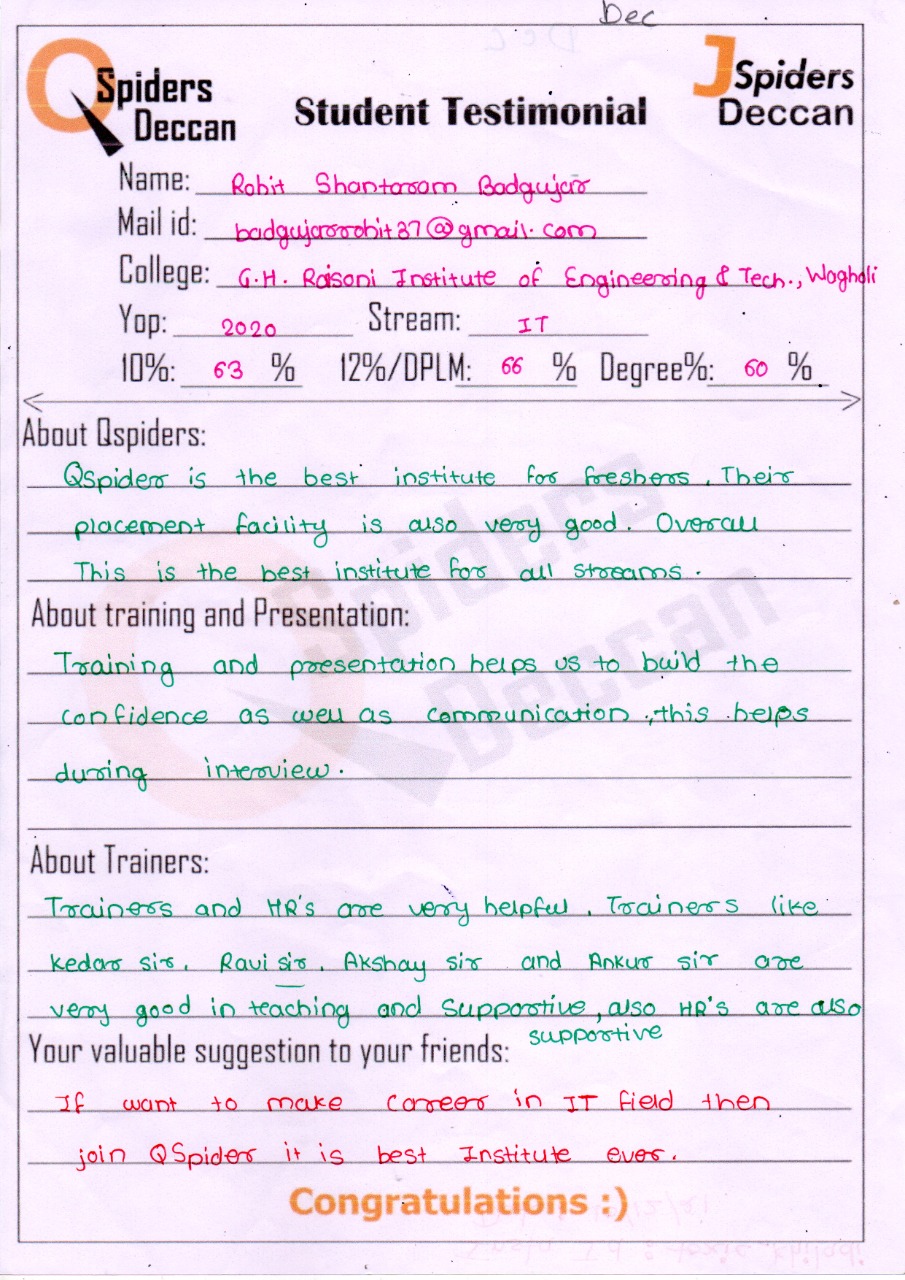 Dec
QSpiders Deccan
Student Testimonial
JSpiders Deccan
Name: Rohit Shantaram Badgujar
Mail id: badgujarrohit37@gmail.com
College: G.H. Raisoni Institute of Engineering & Tech., Wagholi
Yop: 2020 Stream: IT
10%: 63 % 12%/DPLM: 66 % Degree%: 60 %
About Qspiders:
QSpider is the best institute for freshers. Their
placement facility is also very good. Overall
This is the best institute for all streams.
About training and Presentation:
Training and presentation helps us to build the
confidence as well as communication, this helps
during interview.
About Trainers:
Trainers and HR's are very helpful. Trainers like
Kedar sir, Ravi sir, Akshay sir and Ankur sir are
very good in teaching and Supportive, also HR's are also
supportive
Your valuable suggestion to your friends:
If want to make career in IT field then
join QSpider it is best Institute ever.
Congratulations :)